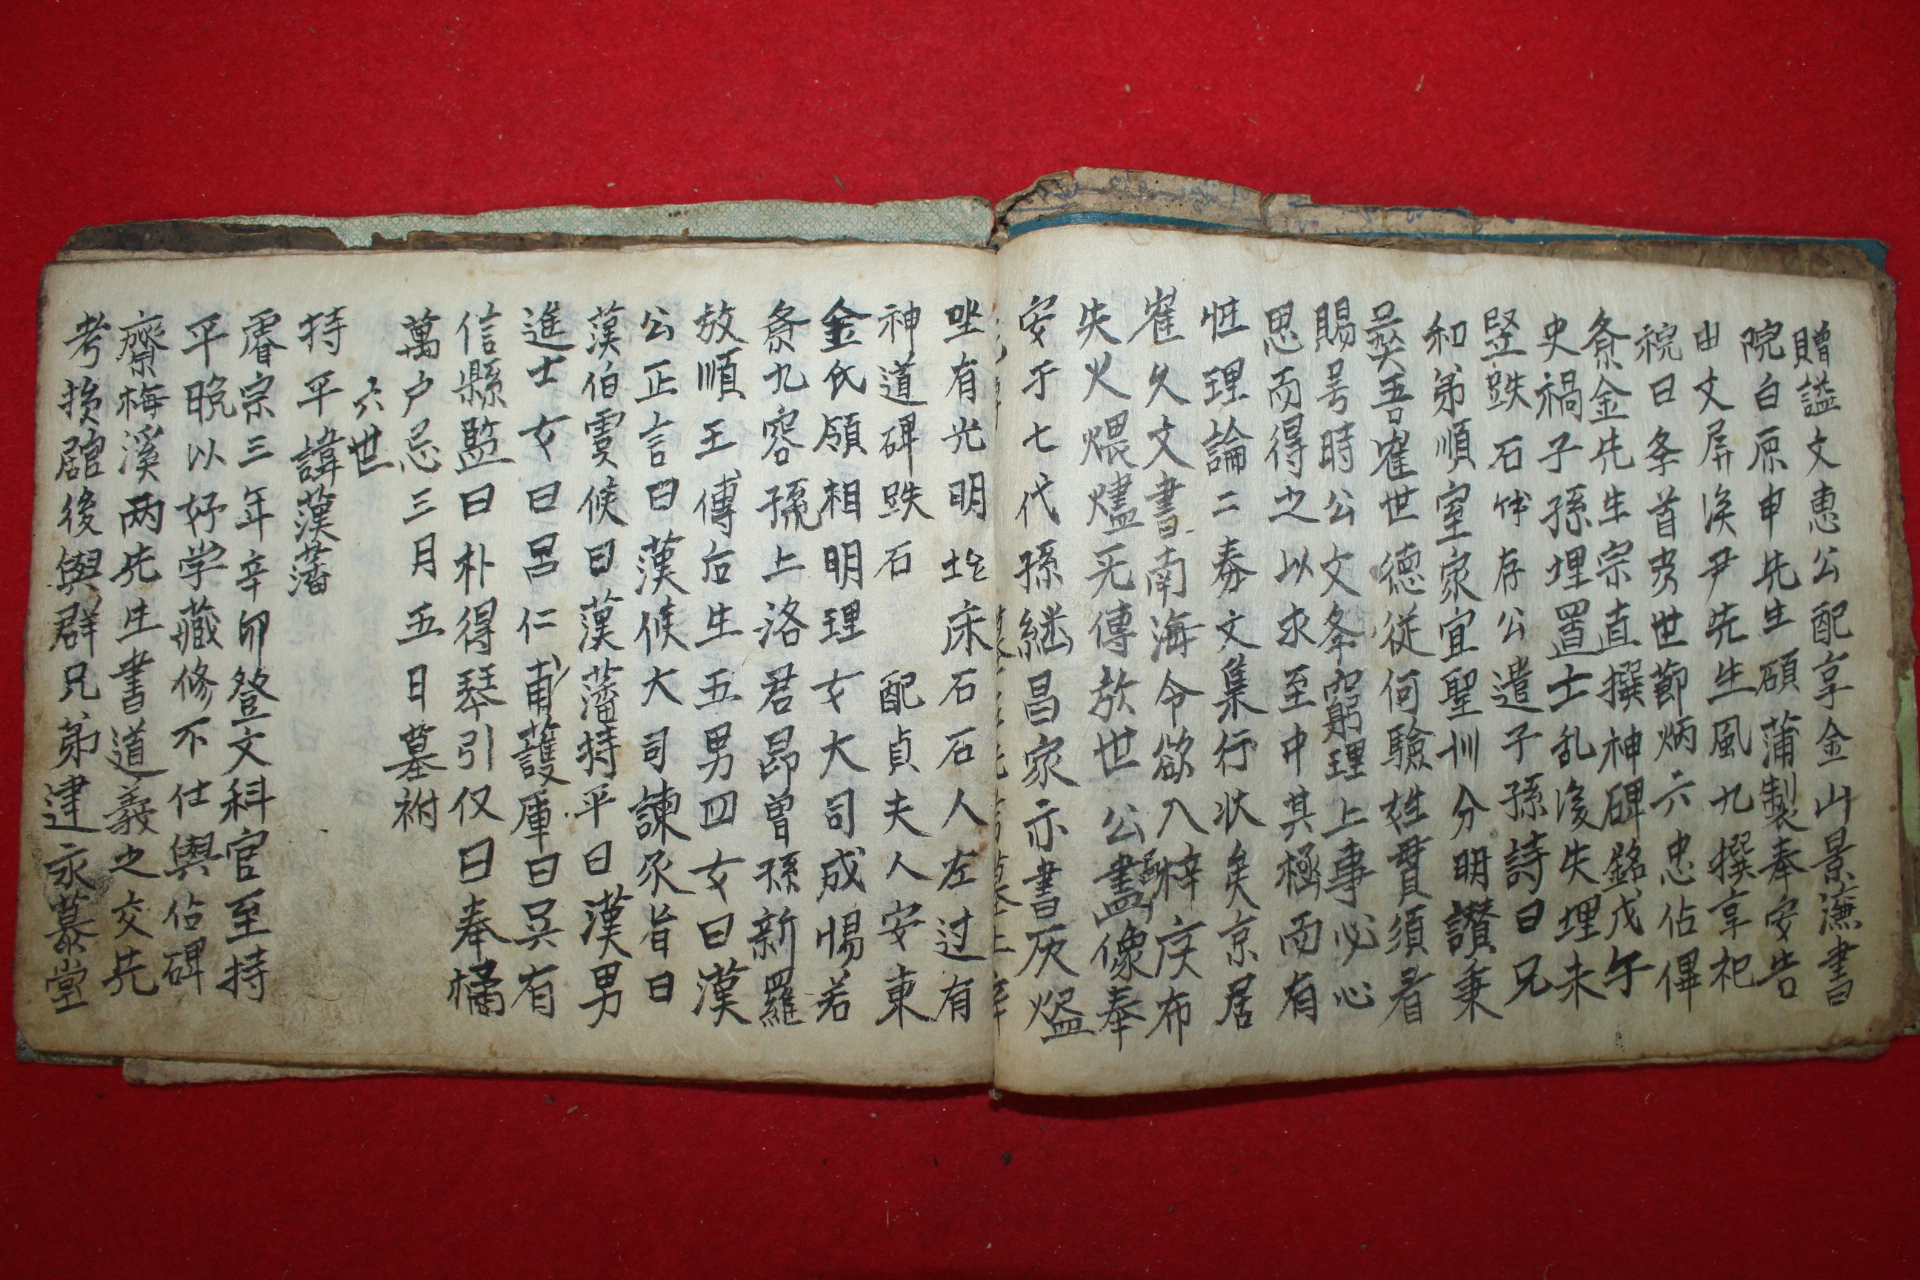 贈謚文惠公配享金山景濂書
院白原申先生碩蒲製奉安告
由文屛溪尹先生風九撰享祀
祝曰冬首旁世節炳六忠佔俾
祭金先生宗直撰神碑銘戊午
史禍子孫埋置士乱後失埋未
竪跌石件存公遣子孫詩曰兄
和弟順室家宜聖訓分明讃秉
吾奄世德従何驗姓貫須看
賜号時公文冬窮理上事必心
思而得之以求至中其極而有
性理論二奏文集行状矣京居
崔久文書南海令欲入梓庆布
失火煨燼旡傳敖世公畵像奉
安于七代孫継昌家亦書灰燼
坐有光明地床石石人左过有
神道碑跌石 配貞夫人安東
金氏領相明理女大司成惕若
斋九容孫上洛君昂曾孫新羅
敖順王傳后生五男四女曰漢
公正言曰漢候大司諫承旨曰
漢伯虞候曰漢藩持平曰漢男
進士女曰呂仁甫護庫曰呉有
信縣監曰朴得琴引仅曰奉橘
萬户忌三月五日墓祔
六世
持平諱漢藩
睿宗三年辛卯登文科官至持
平晩以好学藏修不仕與佔碑
齋梅溪两先生書道義之交先
考損舘後與群兄弟建永慕堂